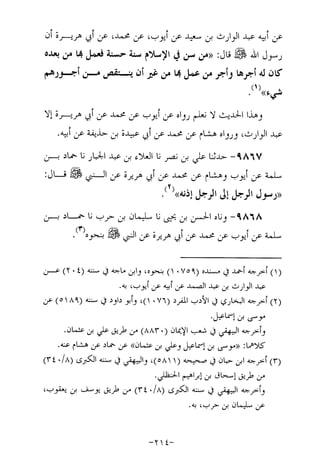 عن أبيه عبد الوارث بن سعيد عن أيوب، عن محمد، عن أبي هريرة أن
رسول الله ﷺ قال: «من سن في الإسلام سنة حسنة فعمل بها من بعده
كان له أجرها وأجر من عمل بها من غير أن ينتقص من أجورهم
شيء»(١).
وهذا الحديث لا نعلم رواه عن أيوب عن محمد عن أبي هريرة إلا
عبد الوارث، ورواه هشام عن محمد عن أبي عبيدة بن حذيفة عن أبيه.
٩٨٦٧- حدثنا علي بن نصر نا العلاء بن عبد الجبار نا حماد بن
سلمة عن أيوب وهشام عن محمد عن أبي هريرة عن النبي ﷺ قال:
«رسول الرجل إلى الرجل إذنه»(٢).
٩٨٦٨- وناه الحسن بن يحيى نا سليمان بن حرب نا حماد بن
سلمة عن أيوب عن محمد عن أبي هريرة عن النبي ﷺ بنحوه(٣).
(١) أخرجه أحمد في مسنده (١٠٧٥٩)، بنحوه، وابن ماجه في سننه (٢٠٤) عن
عبد الوارث بن عبد الصمد عن أبيه عن أيوب، به.
(٢) أخرجه البخاري في الأدب المفرد (١٠٧٦)، وأبو داود في سننه (٥١٨٩) عن
موسى بن إسماعيل.
وأخرجه البيهقي في شعب الإيمان (٨٨٣٠) من طريق علي بن عثمان.
كلاهما: «موسى بن إسماعيل وعلي بن عثمان» عن حماد عن هشام عنه.
(٣) أخرجه ابن حبان في صحيحه (٥٨١١)، والبيهقي في سننه الكبرى (٣٤٠/٨)
من طريق إسحاق بن إبراهيم الحنظلي.
وأخرجه البيهقي في سننه الكبرى (٣٤٠/٨) من طريق يوسف بن يعقوب،
عن سليمان بن حرب، به.
-٢١٤-